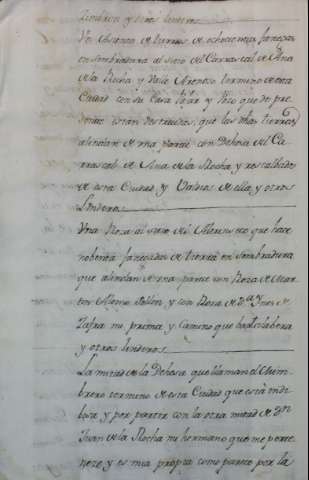 linderos y otros linderos
Un Asiento de tierras de ochocientas fanegas
en sembradura al sitio del Carrascal de Ana
de la Rocha y Valle termino de esta
Ciudad con su Casa lagar y Pozo que de pre
sente estan destruidos, que las dhas tierras
alindan de una parte con Dehesa del Ca
rrascal de Ana de la Rocha y
de esta Ciudad y Valdios de ella y otros
Linderos
Una Roza al sitio de que hace
noventa fanegadas de tierra en sembradura
que alindan de una parte con Roza de Mar
tin Alonso y con Roza de D.ª Ines de
Zafra mi prima y camino que
y otros linderos
La mitad de la Dehesa que llaman el
brero termino de esta Ciudad que está indi
bisa y por partir con la otra mitad de Dn
Juan de la Rocha mi hermano que me perte
neze y es mia propia como parece por la